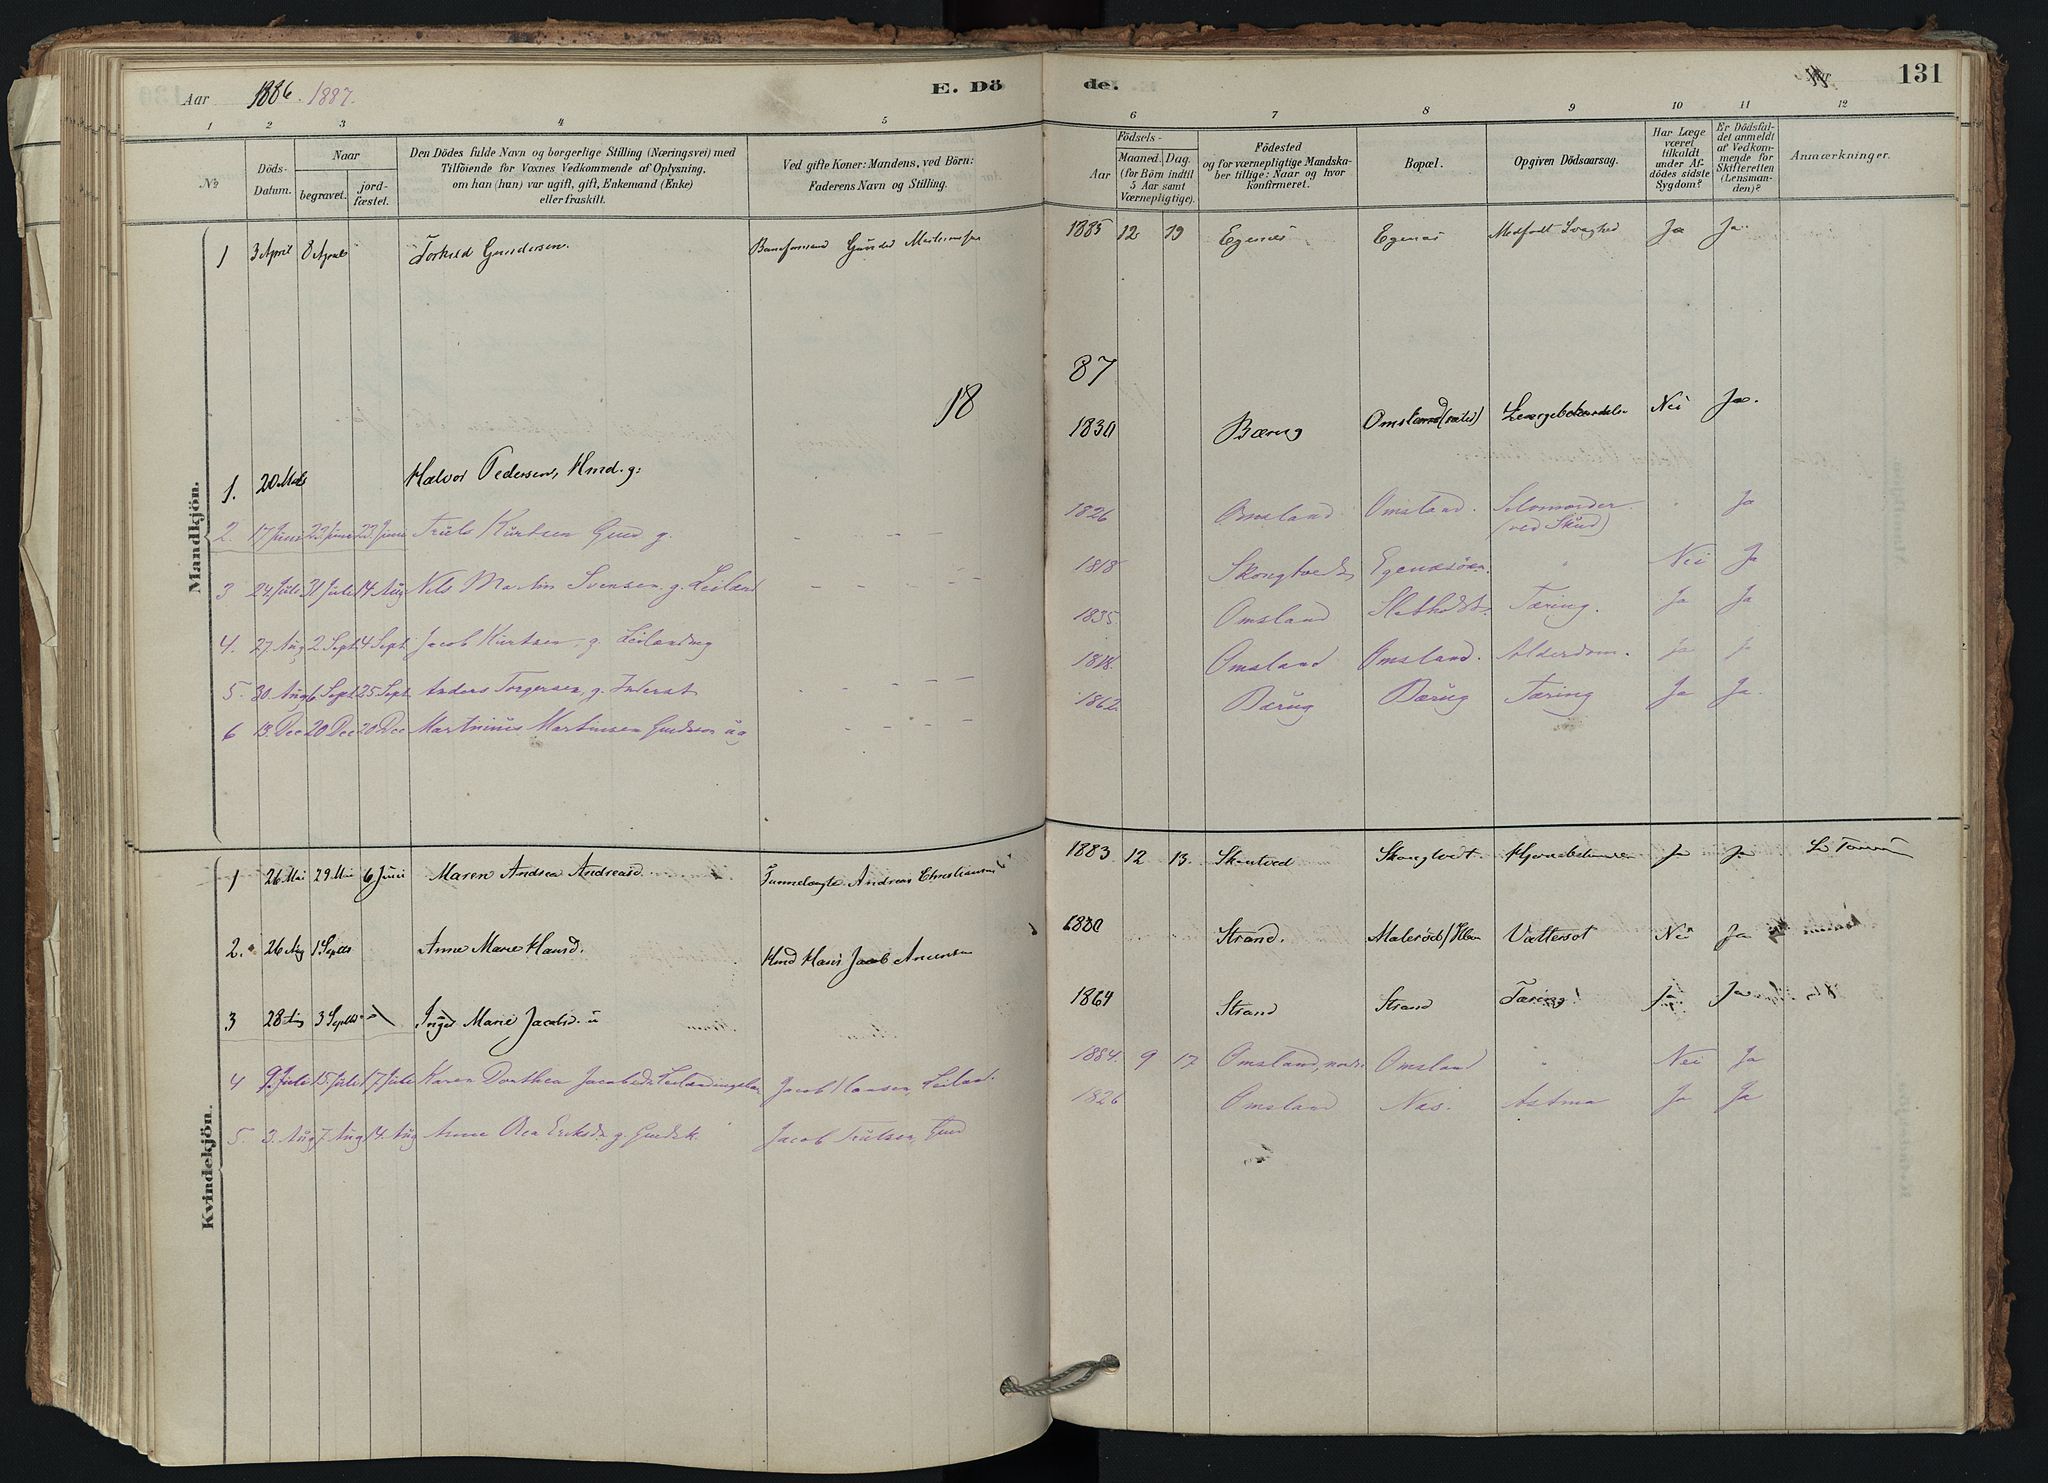 Aar 1886. 1887. E. Dö de. 131
1 2 3 4 5 6 7 8 9 10 11 12
№
Döds-Datum.
Naar
begravet.
jord-fæstet.
Den Dödes fulde Navn og borgerlige Stilling (Næringsvei) med
Tilföiende for Voxnes Vedkommende af Oplysning,
om han (hun) var ugift, gift, Enkemand (Enke)
eller fraskilt.
Ved gifte Koner: Mandens, ved Börn:
Faderens Navn og Stilling.
Födsels-
Aar
Maaned. Dag.
(for Börn indtil
5 Aar samt
Værnepligtige).
Födested
og for værnepligtige Mandska-
ber tillige: Naar og hvor
konfirmeret.
Bopæl.
Opgiven Dödsaarsag.
Har Læge
været
tilkaldt
under Af-
dödes sidste
Sygdom?
Er Dödsfal-
det anmeldt
af Vedkom-
mende for
Skifteretten
(Lensman-
den)?
Anmærkninger.
Mandkjön.
1 3 April 8 April Torkild Gundersen. Gunder 1885 12 19 Egenes Egenes Medfödt Svaghed Ja Ja.
18 87
1. 20 Halvor Pedersen, Hmd. g: 1830 Bærug Omsland Nei Ja.
2. 17 Juni 22 Juni 23 Juni Truls Kurtsen Gmd g. 1826 Omsland Omsland. Selvmorder Ja
(ved Skud)
3 24 Juli 31 Juli 14 Aug Nils Martin Svensen g. Leiland 1818 Nei Ja
4. 27 Aug 2 Sept 4 Sept Jacob Kurtsen, g. Leilænding 1835 Omsland Tæring. Ja Ja
5. 30. Aug 6 Sept 25 Sept. Anders Torgersen, g. Inderst 1818. Omsland Omsland. Alderdom. Ja J
6 13. Dec 20 Dec 20 Dec Martinius Martinsen ug 1862. Bærug Bærug Tæring Ja Ja.
Kvindekjön.
1 26 Mai 29 Mai 6 Juni Maren Andrea Andreasd. Andreas Christiansen 1883 12 13. Skontved Skongtvedt. Ja Ja
2. 26 Aug 1 Septb Anne Marie Hansd. Hmd Hans Jacob 1880 Strand. Vattersot Nei Ja
3 28 Aug 3 Septb Inger Marie Jacobsd. u 1864 Strand Strand Tæring! Ja Ja
4 9. Juli 15 Juli 17 Juli Karen Dorthea Jacobsdr Jacob Hansen, Leiland. 1884. 9 17 Omsland, Omsland " Nei Ja
5. 3. Aug 7 Aug 14. Aug Anne Eriksdr g. Jacob Trulsen, Gmd 1826 Omsland Næs. Astma Ja Ja